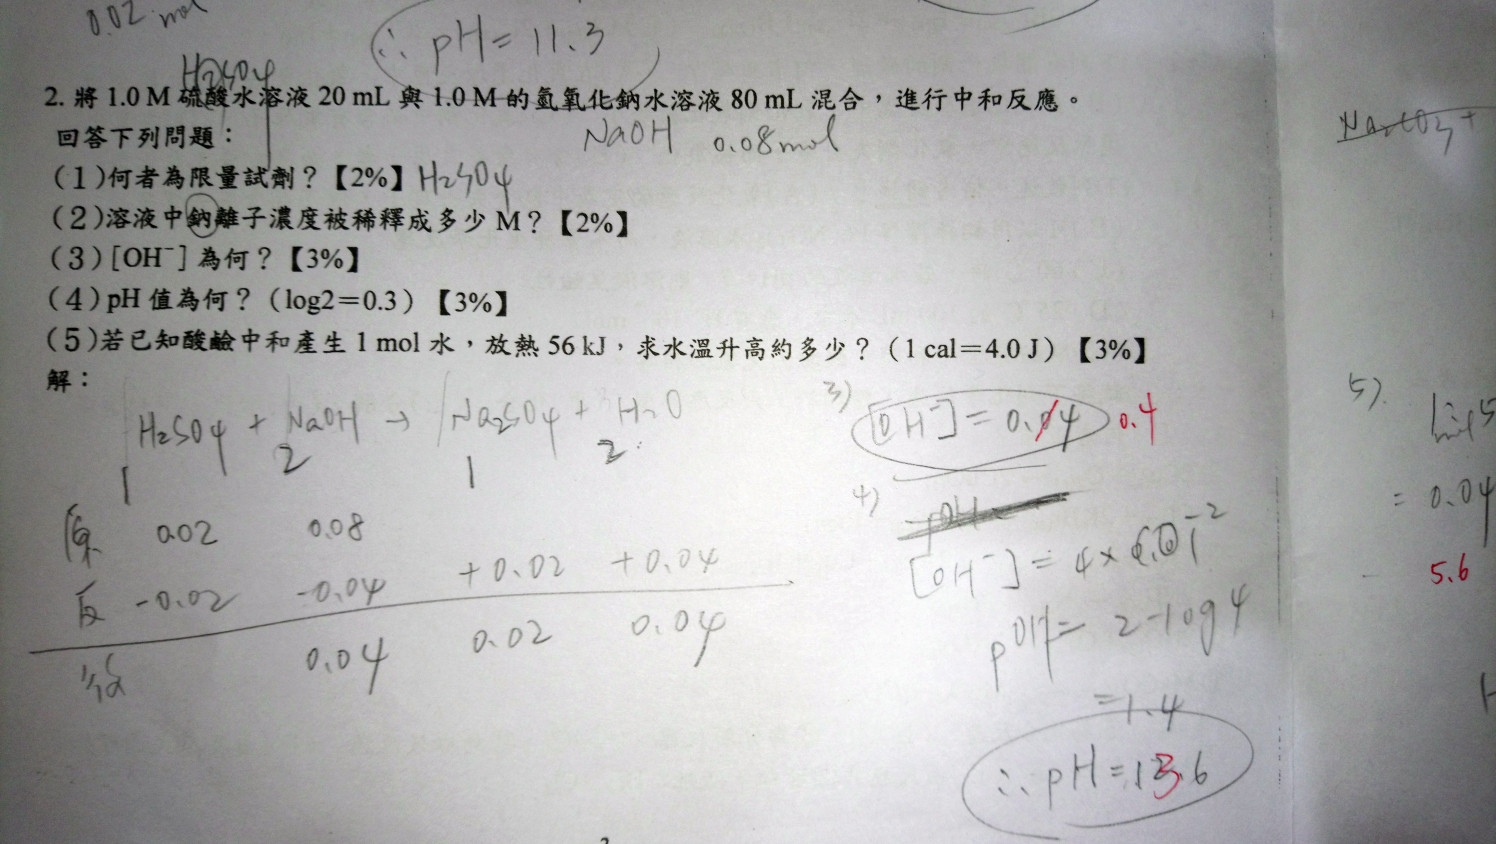 0.02 mol
∴ pH = 11.3
H₂SO₄
2. 將 1.0 M 硫酸水溶液 20 mL 與 1.0 M 的氫氧化鈉水溶液 80 mL 混合，進行中和反應。
回答下列問題：
NaOH 0.08mol
(1)何者為限量試劑？【2%】 H₂SO₄
(2)溶液中鈉離子濃度被稀釋成多少 M？【2%】
(3)[OH⁻] 為何？【3%】
(4)pH 值為何？（log2＝0.3）【3%】
(5)若已知酸鹼中和產生 1 mol 水，放熱 56 kJ，求水溫升高約多少？（1 cal＝4.0 J）【3%】
解：
H₂SO₄ + NaOH → Na₂SO₄ + H₂O
1 2 1 2
原 0.02 0.08
反 -0.02 -0.04 +0.02 +0.04
後 0.04 0.02 0.04
3)
[OH⁻] = 0.04 0.4
4)
pOH =
[OH⁻] = 4 ×
pOH = 2-log4
= 1.4
∴ pH = 13.6
5).
= 0.04
5.6